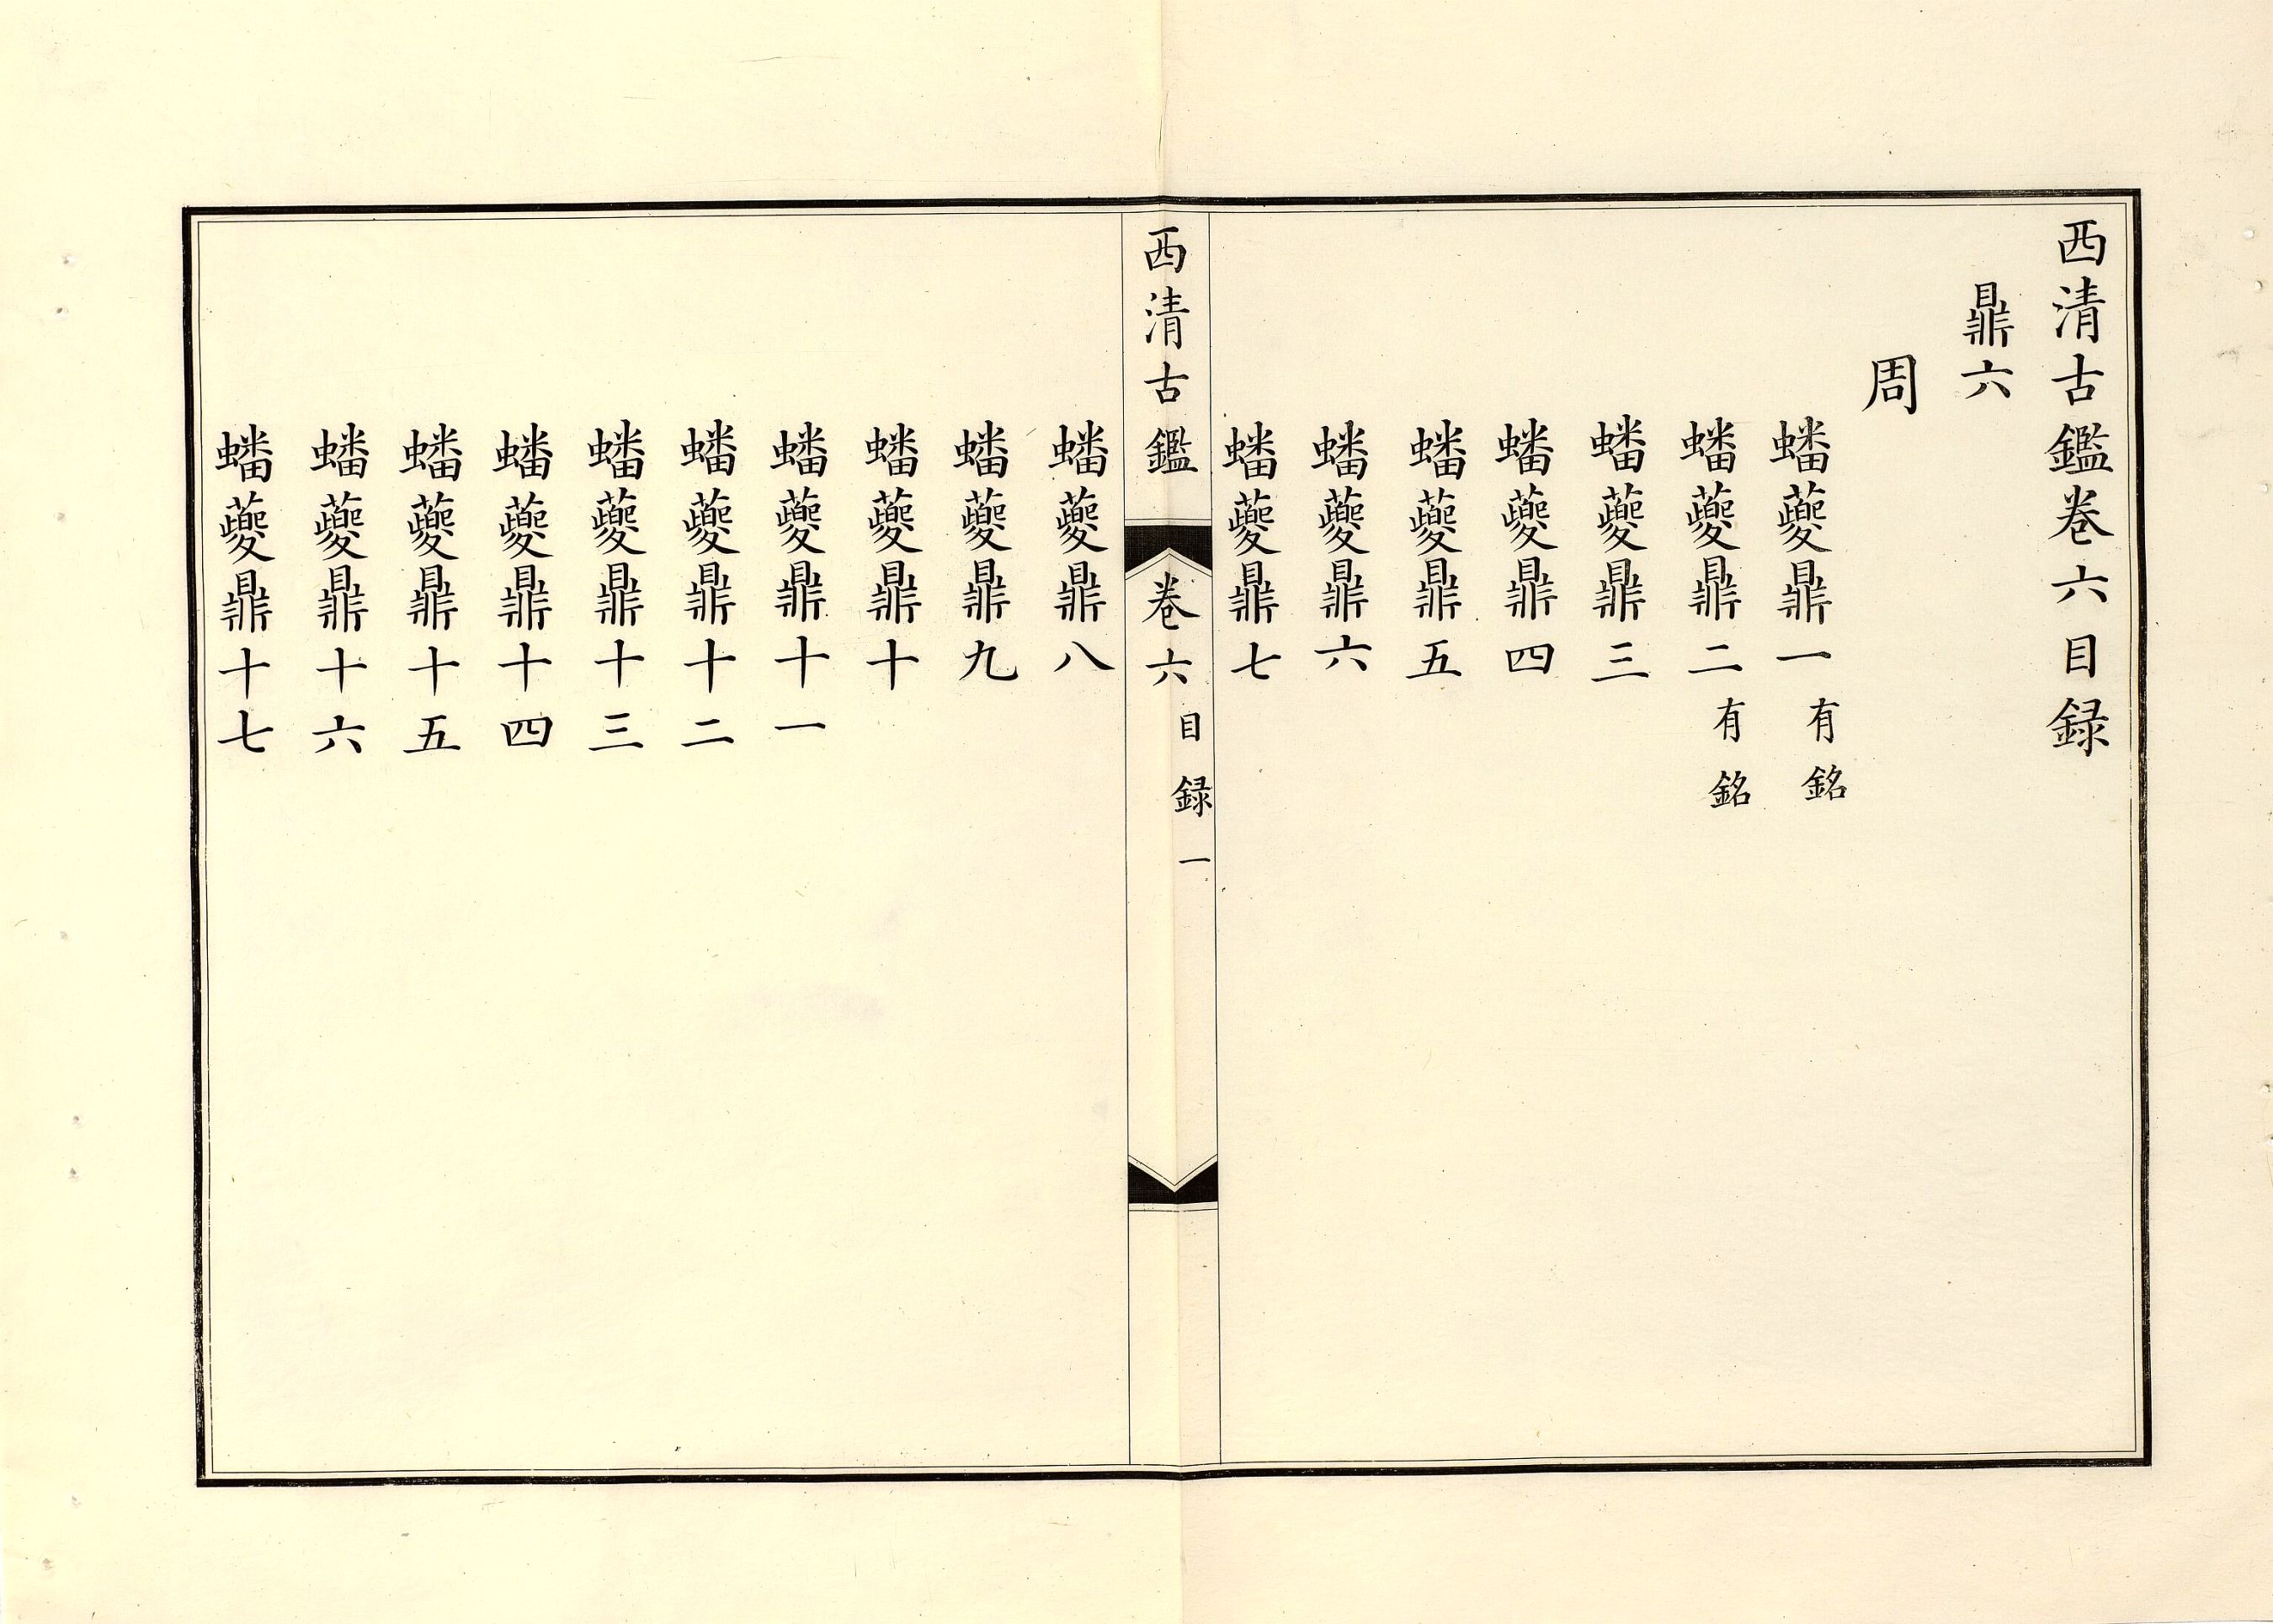 西清古鑑卷六目録
鼎六
周
蟠夔鼎一有銘
蟠夔鼎二有銘
蟠夔鼎三
蟠夔鼎四
蟠夔鼎五
蟠夔鼎六
蟠夔鼎七
西清古鑑
卷六
目録
一
蟠夔鼎八
蟠夔鼎九
蟠夔鼎十
蟠夔鼎十一
蟠夔鼎十二
蟠夔鼎十三
蟠夔鼎十四
蟠夔鼎十五
蟠夔鼎十六
蟠夔鼎十七